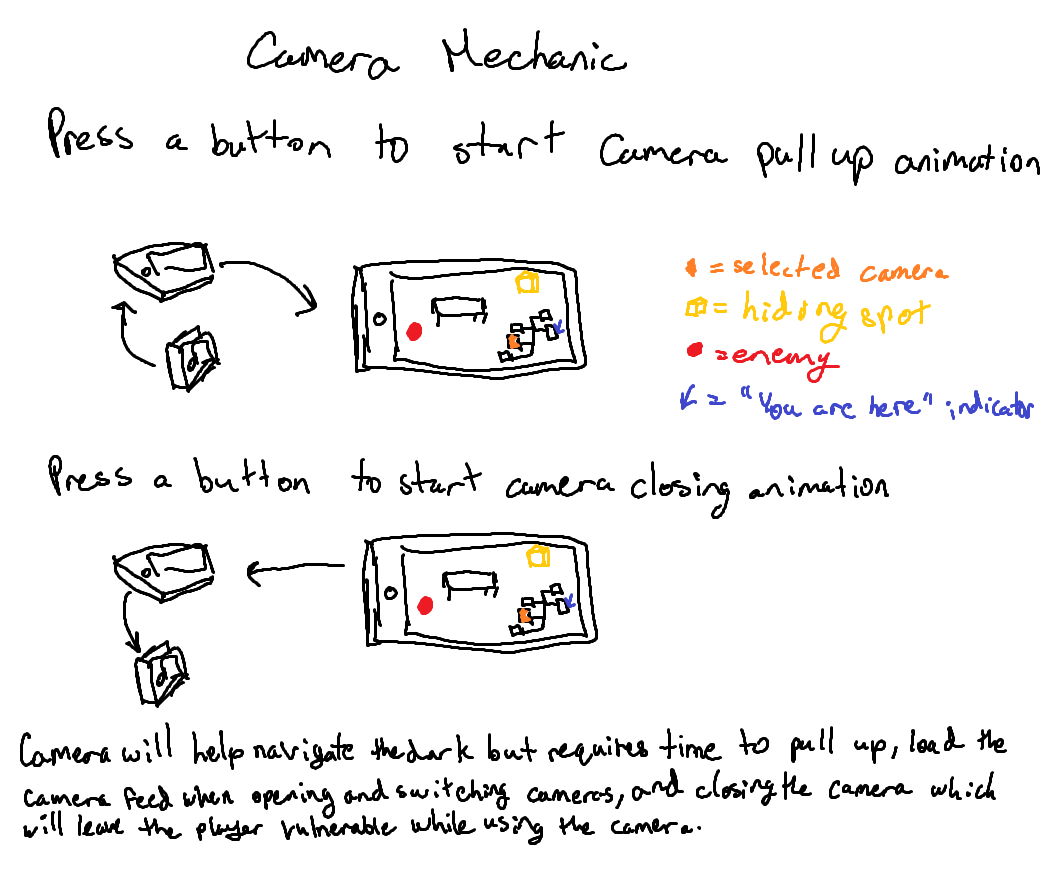 Camera Mechanic
Press a button to start Camera pull up animation
= selected camera
= hiding spot
= enemy
= "You are here" indicator
Press a button to start camera closing animation
Camera will help navigate the dark but requires time to pull up, load the
camera feed when opening and switching cameras, and closing the camera which
will leave the player vulnerable while using the camera.